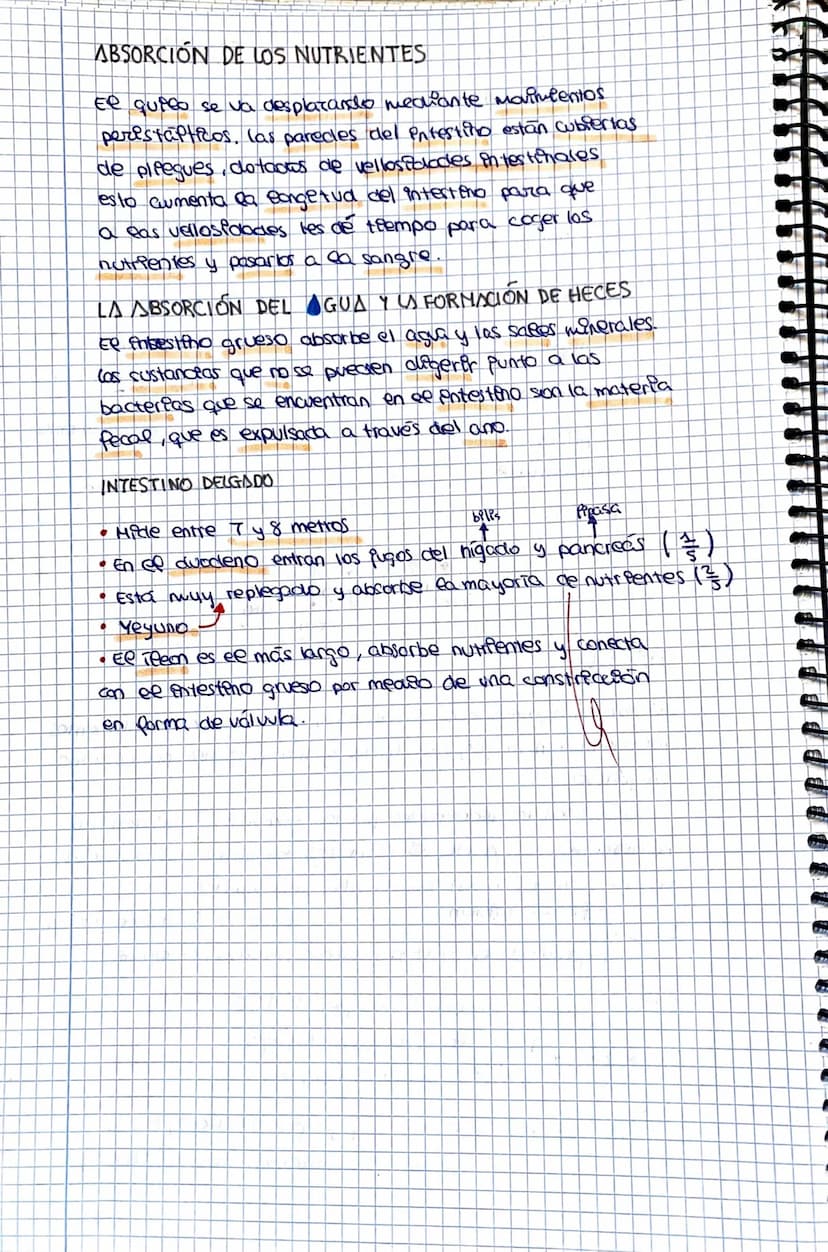 ABSORCIÓN DE LOS NUTRIENTES
El quilo se va desplazando mediante movimientos
peristálticos. Las paredes del intestino están cubiertas
de pliegues, dotados de vellosidades intestinales,
esto aumenta la longitud del intestino para que
a las vellosidades les dé tiempo para coger los
nutrientes y pasarlos a la sangre.
LA ABSORCIÓN DEL AGUA Y LA FORMACIÓN DE HECES
El intestino grueso absorbe el agua y las sales minerales.
Las sustancias que no se pueden digerir punto a las
bacterias que se encuentran en el intestino son la materia
fecal, que es expulsada a través del ano.
INTESTINO DELGADO
• Mide entre 7 y 8 metros
bilis lipasa
• En el duodeno entran los jugos del hígado y pancreás (1/5)
• Está muy replegado y absorbe la mayoría de nutrientes (2/5)
• Yeyuno
• El íleon es el más largo, absorbe nutrientes y conecta
con el intestino grueso por medio de una constricción
en forma de válvula.